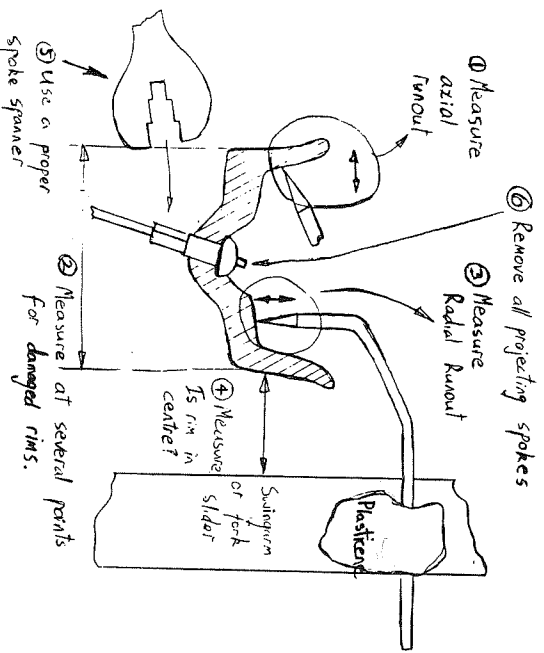 ① Measure
axial
runout
② Measure at several points
for damaged rims.
③ Measure
Radial Runout
④ Measure
Is rim in
centre?
⑤ Use a proper
spoke spanner
⑥ Remove all projecting spokes
Swingarm
or fork
slider
Plasticene